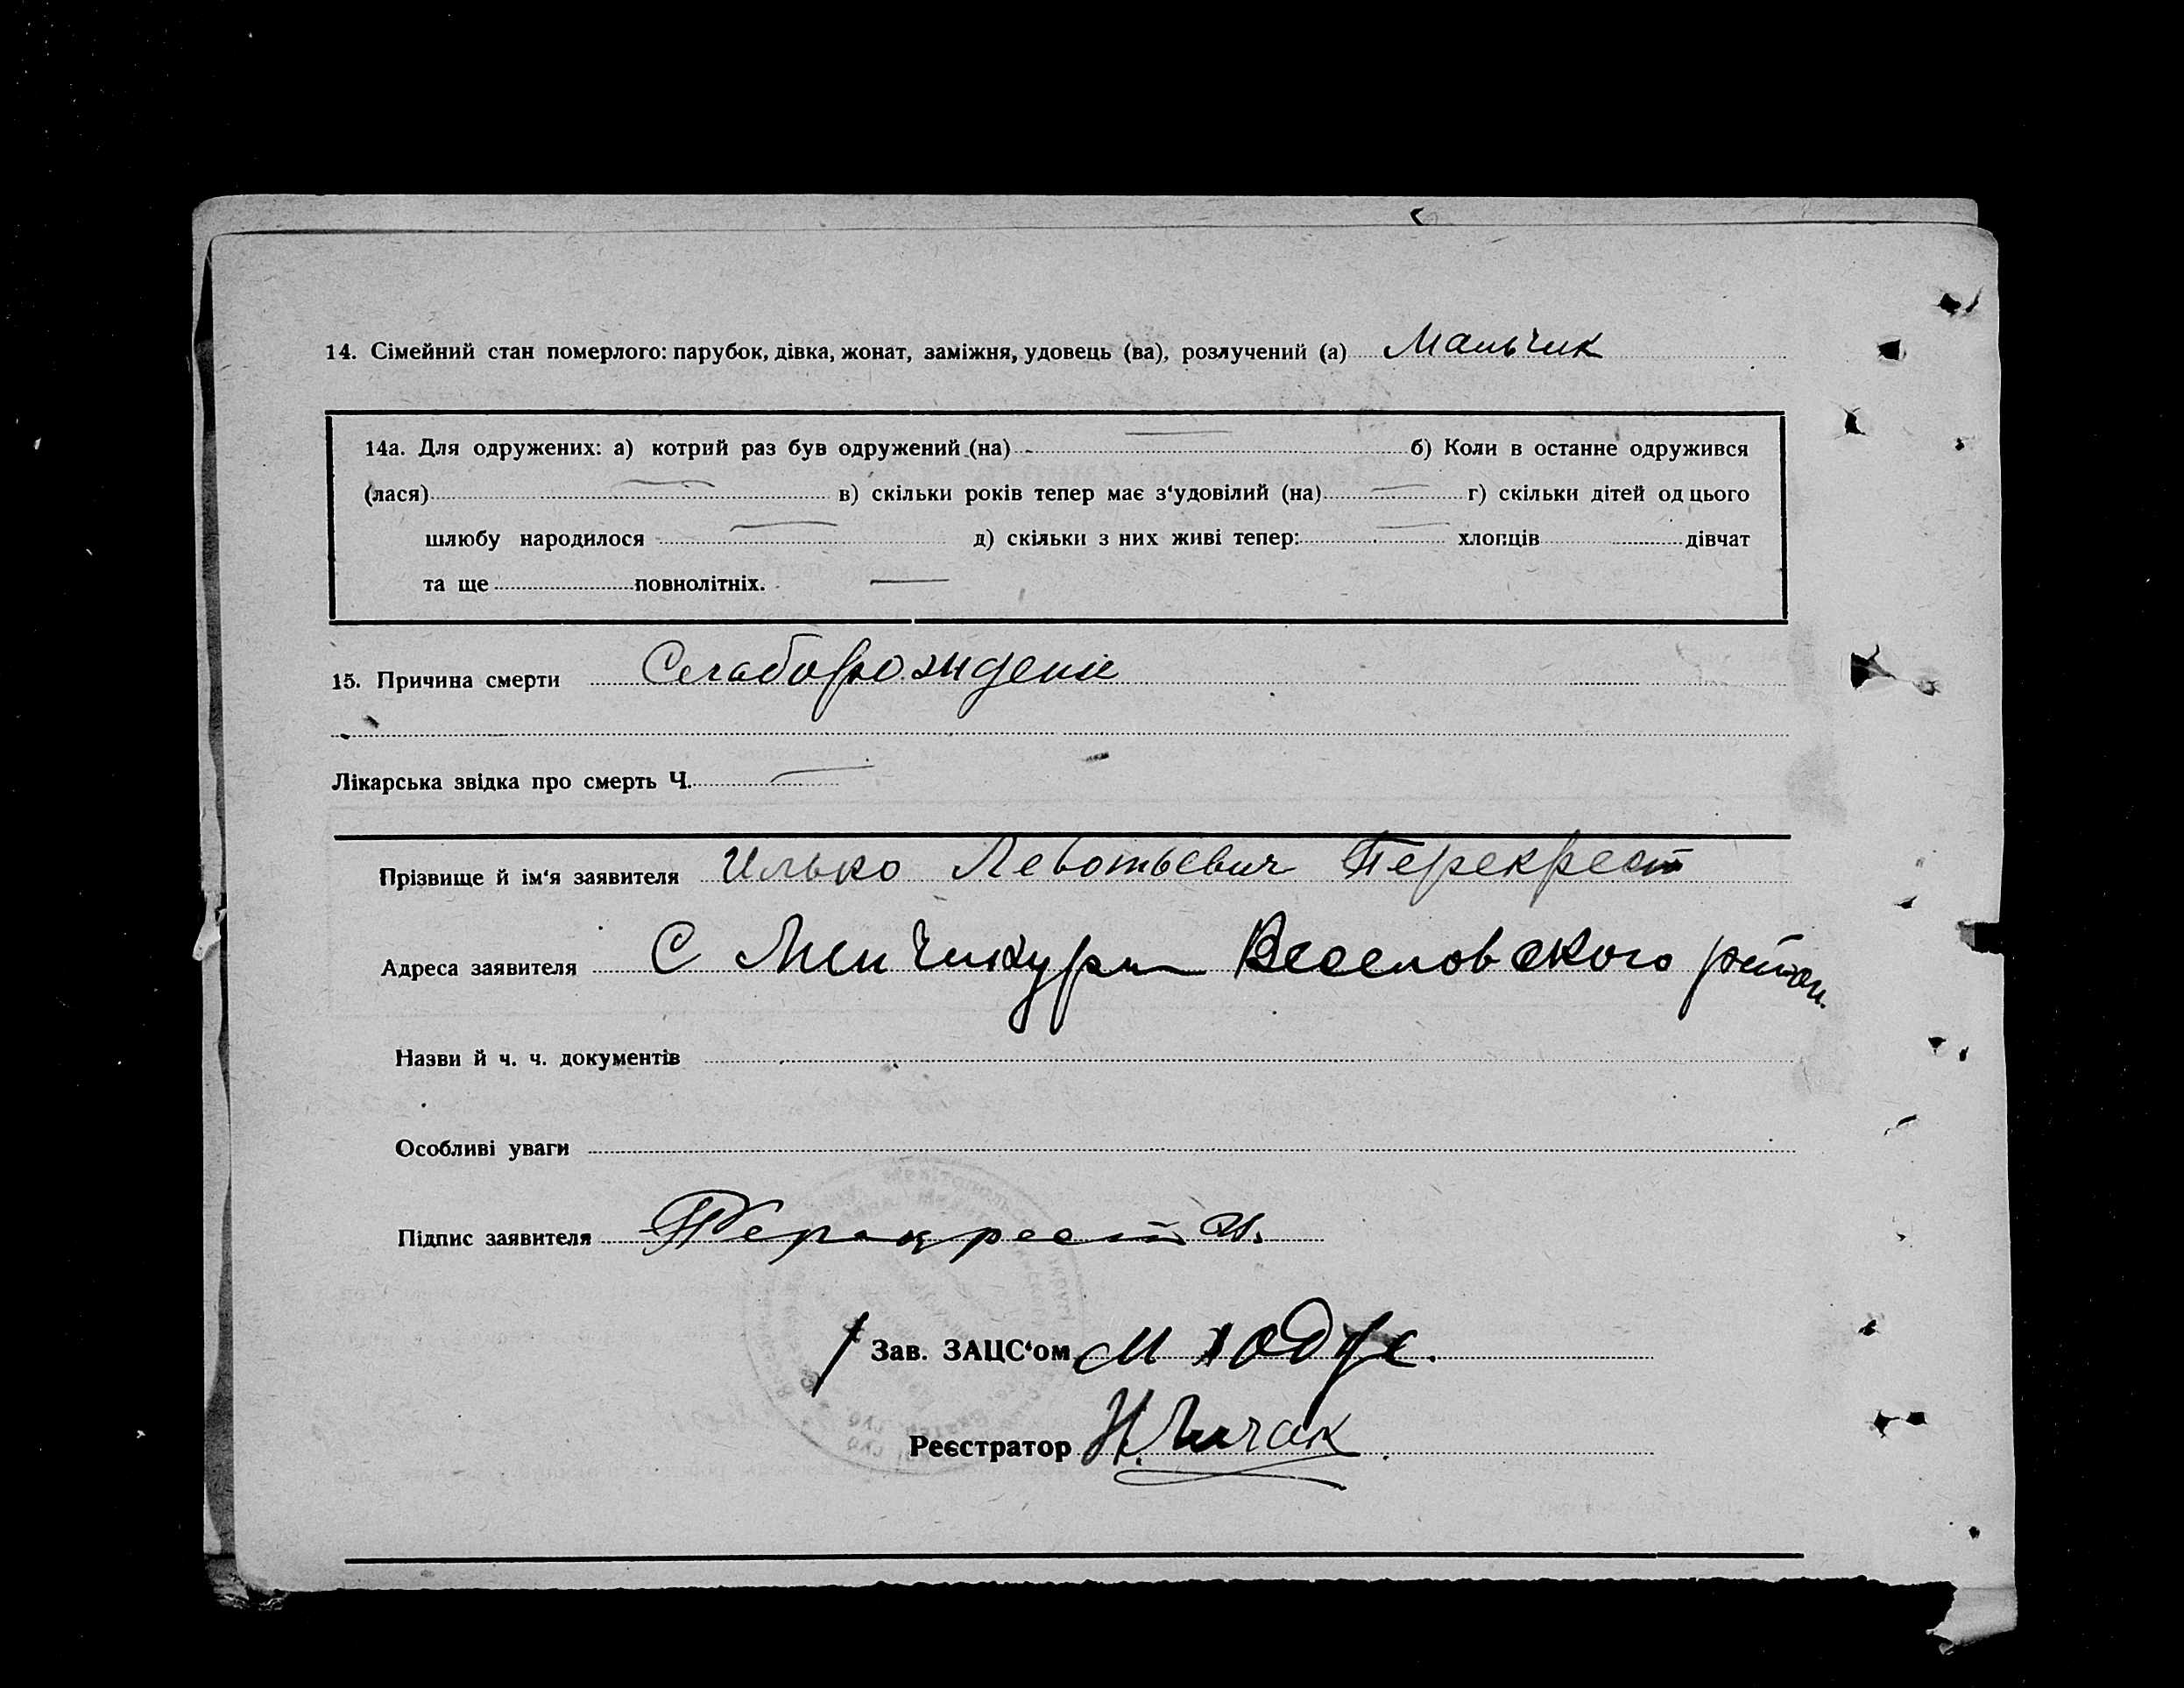 14. Сімейний стан померлого: парубок, дівка, жонат, заміжня, удовець (ва), розлучений (а) Мальчик
14а. Для одружених: а) котрий раз був одружений (на) б) Коли в останне одружився
(лася) в) скільки років тепер має з‘удовілий (на) г) скільки дітей од цього
шлюбу народилося д) скільки з них живі тепер: хлопців дівчат
та ще повнолітніх.
15. Причина смерти Слаборождение
Лікарська звідка про смерть Ч.
Прізвище й ім‘я заявителя Илько Левотьевич Перекрест
Адреса заявителя С Менчикуры Веселовского район.
Назви й ч. ч. документів
Особливі уваги
Підпис заявителя Перекрест И.
Зав. ЗАЦС‘ом
Реєстратор